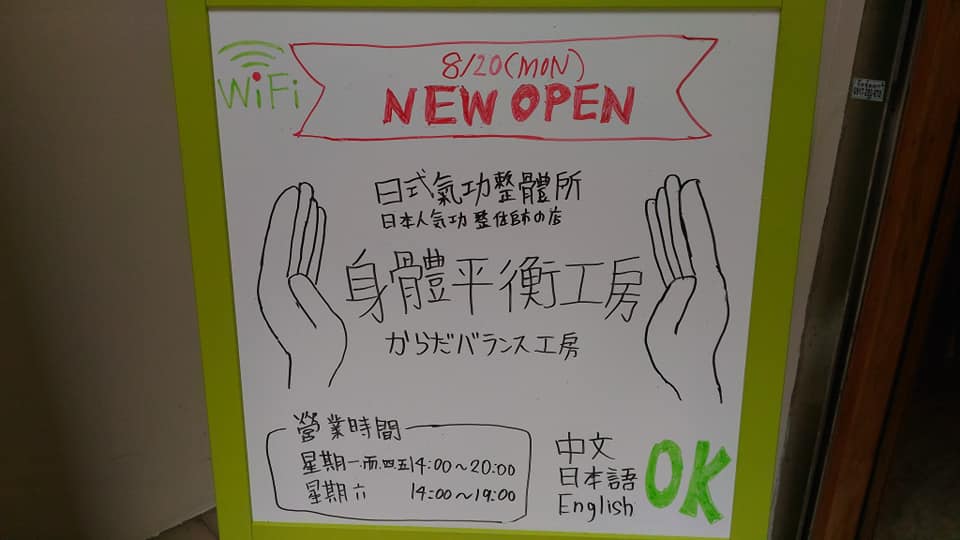 WiFi
8/20(MON)
NEW OPEN
日式氣功整體所
日本人気功整体師の店
身體平衡工房
からだバランス工房
營業時間
星期一.四.五14:00~20:00
星期六 14:00~19:00
中文
日本語
English
OK